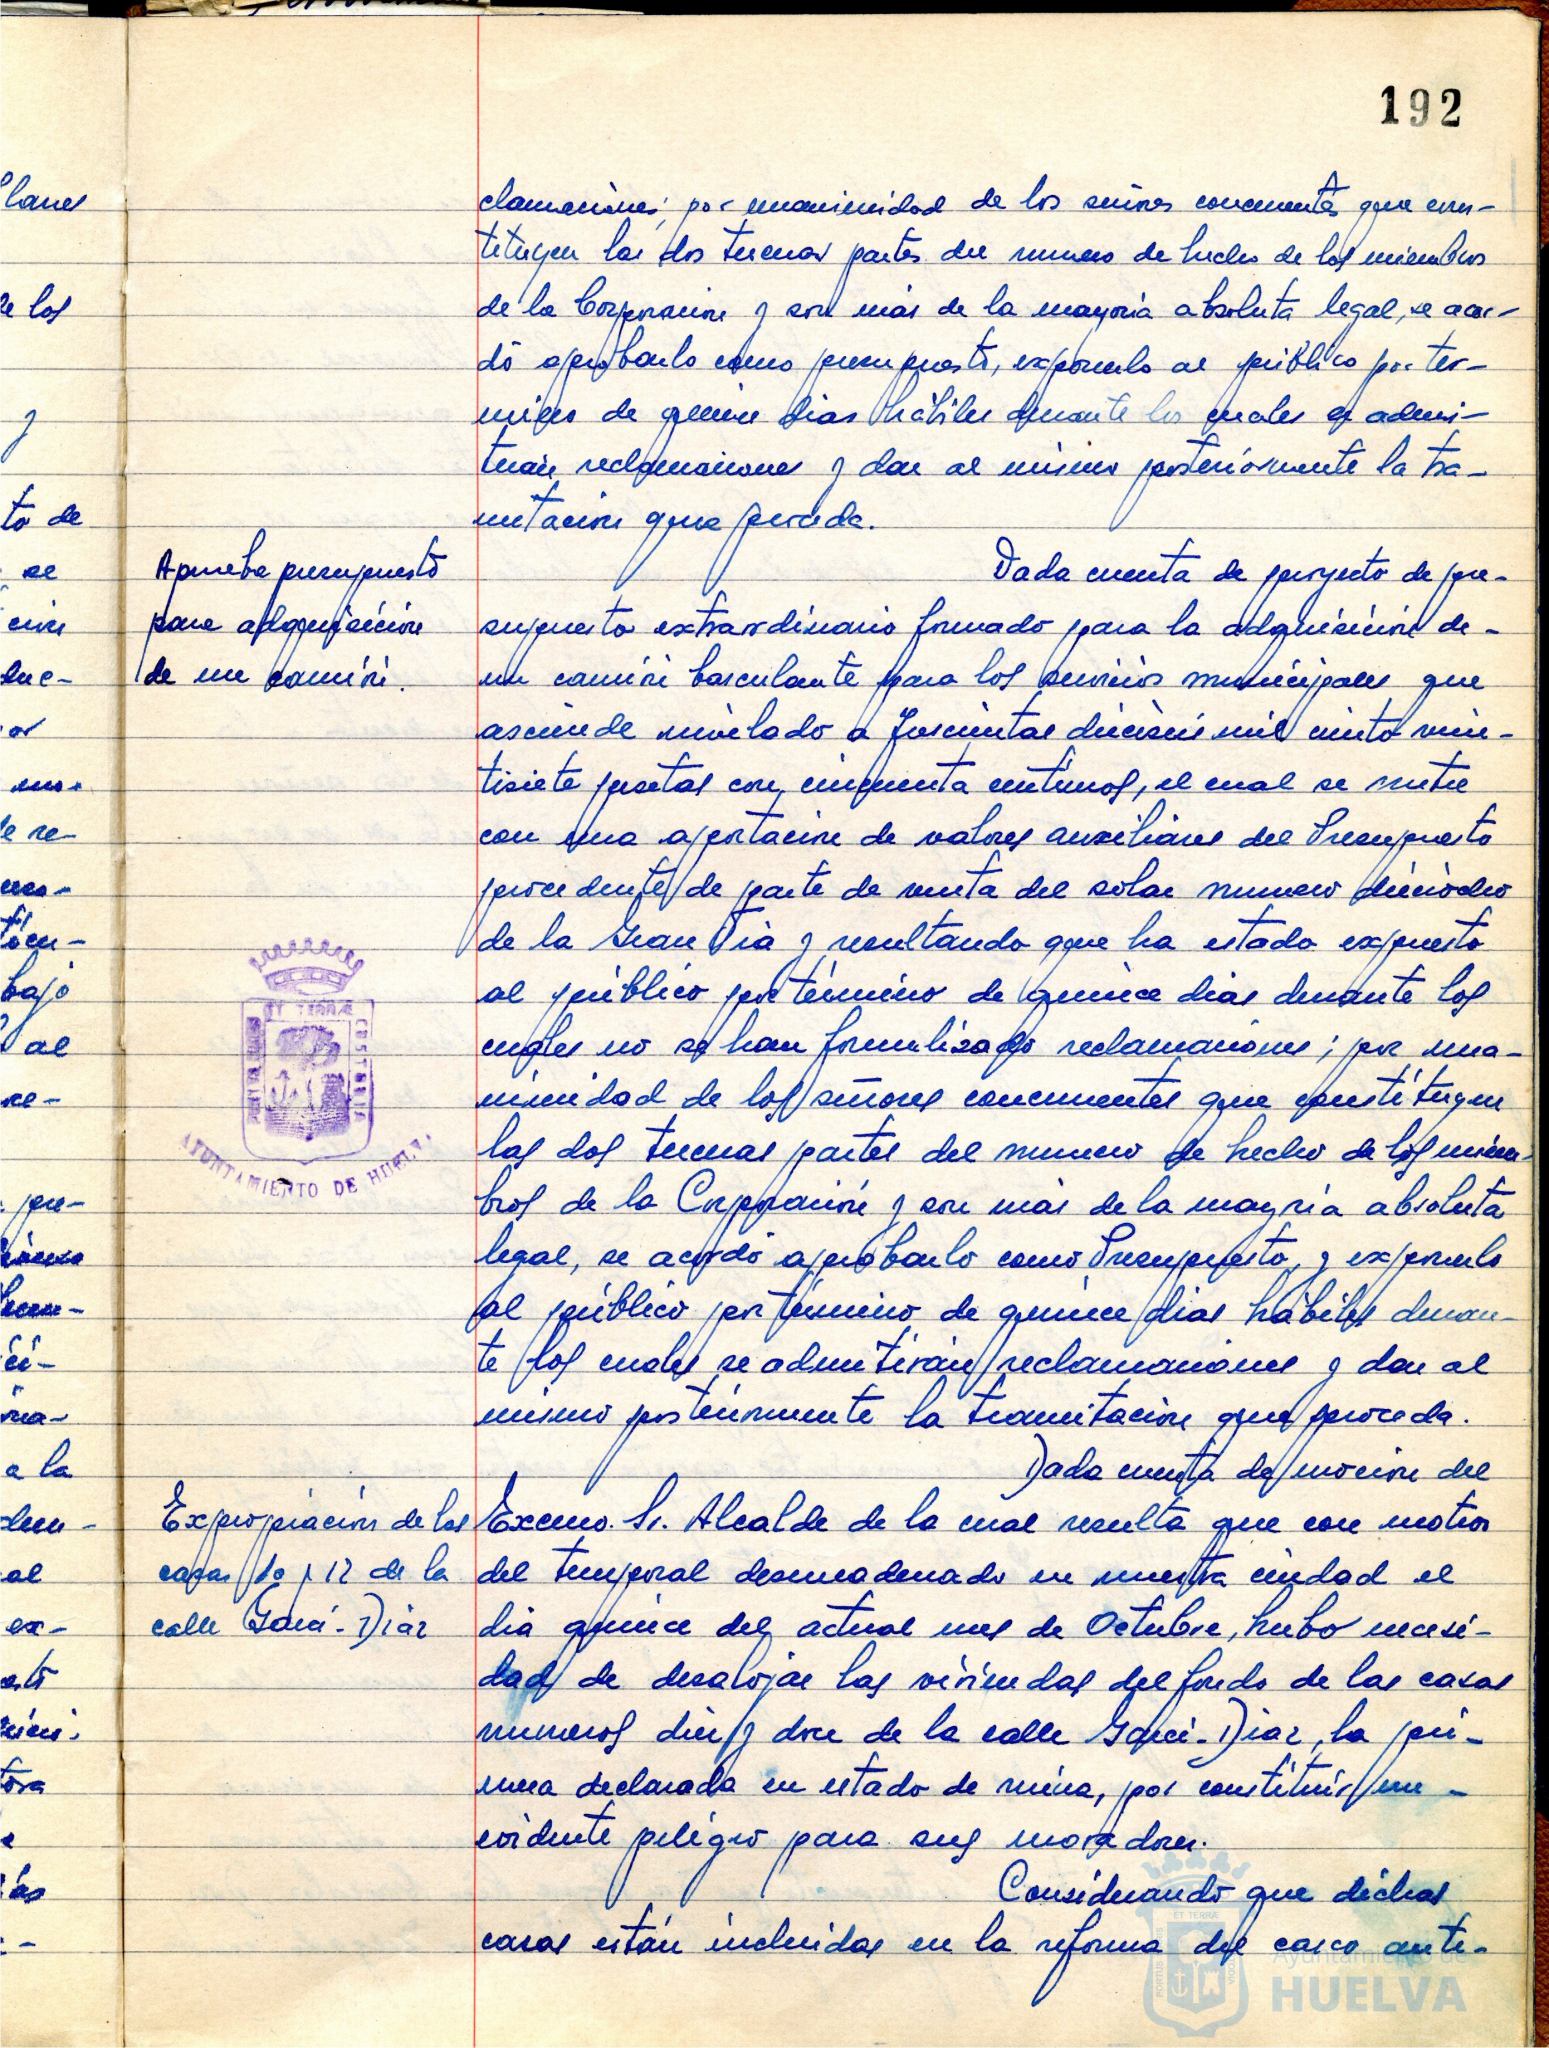 192
clamaciones; por unanimidad de los señores concurrentes que cons-
tituyen las dos terceras partes del numero de hecho de los miembros
de la Corporación y son más de la mayoria absoluta legal, se acor-
dó aprobarlo como presupuesto, exponerlo al público por ter-
mino de quince dias hábiles durante los cuales se admi-
tirán reclamaciones y dar al mismo posteriormente la tra-
mitación que proceda.
Aprueba presupuesto
para adquisición
de un camión.
Dada cuenta de proyecto de pre-
supuesto extraordinario formado para la adquisición de-
un camión basculante para los servicios municipales que
asciende nivelado a trescientas dieciseis mil ciento vein-
tisiete pesetas con cincuenta centimos, el cual se nutre
con una aportación de valores auxiliares del Presupuesto
procedente de parte de venta del solar numero dieciocho
de la Gran Via y resultando que ha estado expuesto
al público por término de quince dias durante los
cuales no se han formalizado reclamaciones; por una-
nimidad de los señores concurrentes que constituyen
las dos terceras partes del numero de hecho de los miem-
bros de la Corporación y son más de la mayoria absoluta
legal, se acordó aprobarlo como Presupuesto, y exponerlo
al público por término de quince dias hábiles duran-
te los cuales se admitirán reclamaciones y dar al
mismo posteriormente la tramitación que proceda.
Expropiación de las
casas 10 y 12 de la
calle Garci-Diaz
Dada cuenta de moción del
Excmo. Sr. Alcalde de la cual resulta que con motivo
del temporal desencadenado en nuestra ciudad el
dia quince del actual mes de Octubre, hubo necesi-
dad de desalojar las viviendas del fondo de las casas
numeros diez y doce de la calle Garci-Diaz, la pri-
mera declarada en estado de ruina, por constituir un-
evidente peligro para sus moradores.
Considerando que dichas
casas están incluidas en la reforma del casco ante-
ET TERRÆ
AYUNTAMIENTO DE HUELVA
Ayuntamiento de
HUELVA